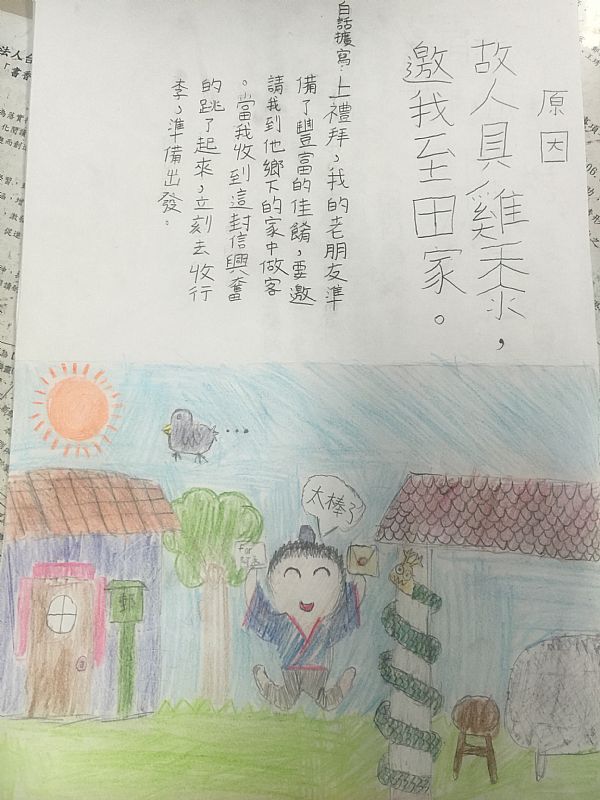 原因
故人具雞黍，
邀我至田家。
白話擴寫：上禮拜，我的老朋友準
備了豐富的佳餚，要邀
請我到他鄉下的家中做客
。當我收到這封信興奮
的跳了起來，立刻去收行
李，準備出發。
...
太棒了
For
郵
法人台
「書香